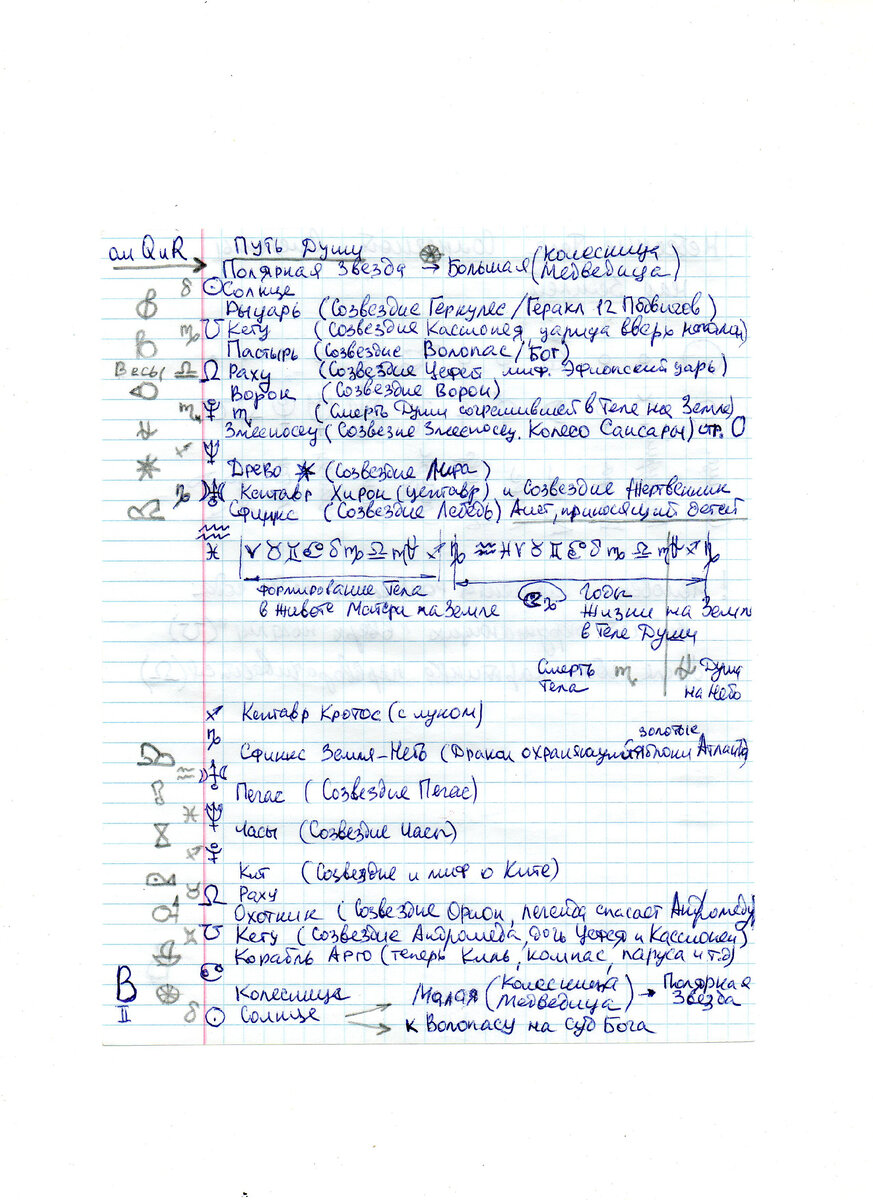 ПУТЬ Души
Полярная Звезда → Большая (Колесница
Медведица)
♌ ☉ Солнце
Рыцарь (Созвездие Геркулес/Геракл 12 Подвигов)
♍ ☋ Кету (Созвездие Кассиопея, царица вверх ногами)
Пастырь (Созвездие Волопас/Бог)
Весы ♎ ☊ Раху (Созвездие Цефей миф. Эфиопский царь)
Ворон (Созвездие Ворон)
♏ ♏ (Смерть Души согрешившей в Теле на Земле)
Змееносец (Созвезие Змееносец. Колесо Сансары) стр. 0
♐ ♆
Древо (Созвездие Лира)
♑ Кентавр Хирон (центавр) и Созвездие Жертвенник
Сфинкс (Созвездие Лебедь) Аист, приносящий детей
♒
♓ ♈ ♉ ♊ ♋ ♌ ♍ ♎ ♏ ♐ ♑ ♒ ♓ ♈ ♉ ♊ ♋ ♌ ♍ ♎ ♏ ♐ ♑
формирование Тела
в Животе Матери на Земле
Годы
Жизни на Земле
в Теле Души
Смерть
Тела
♏
Душа
на Небо
♐ Кентавр Кротос (с луком)
♑
золотые
Сфинкс Земля-Небо (Дракон охраняющий яблоки Атланта)
♒
Пегас (Созвездие Пегас)
♓ ♆
Часы (Созвездие Часы)
♐
Кит (Созвездие и миф о Ките)
♉ ☊ Раху
Охотник (Созвездие Орион, легенда спасает Андромеду)
☋ Кету (Созвездие Андромеда, дочь Цефея и Кассиопеи)
Корабль Арго (теперь Киль, компас, паруса и т.д)
Колесница Малая (Колесница
Медведица) → Полярная
Звезда
В
II
♌ ☉ Солнце
к Волопасу на Суд Бога